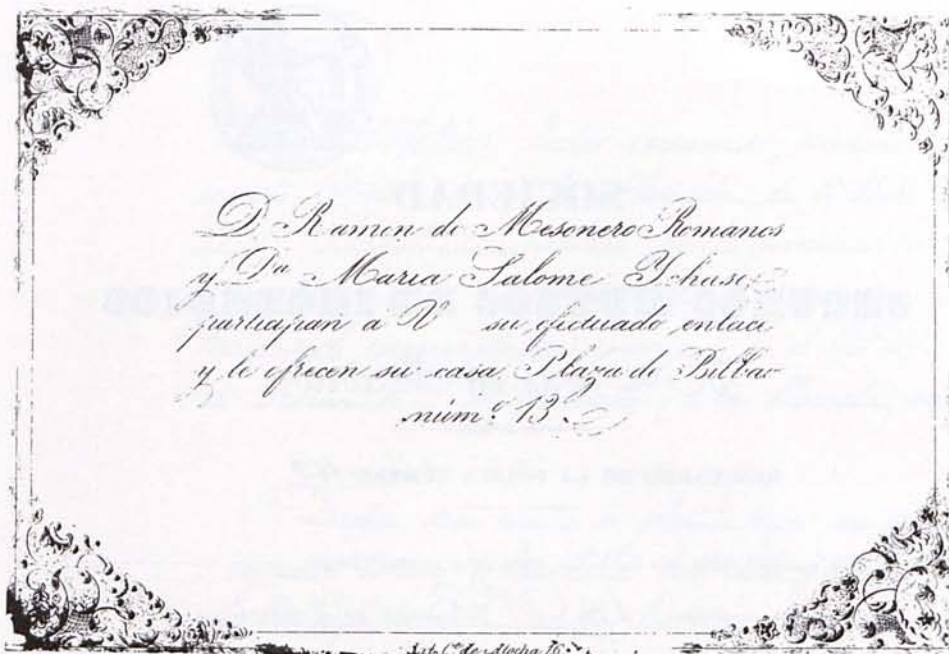 D. Ramon de Mesonero Romanos
y Dª. Maria Salome Ychaso
participan a Vd. su efectuado enlace
y le ofrecen su casa, Plaza de Bilbao
núm.º 13.
Lit. Cª de Atocha 76.